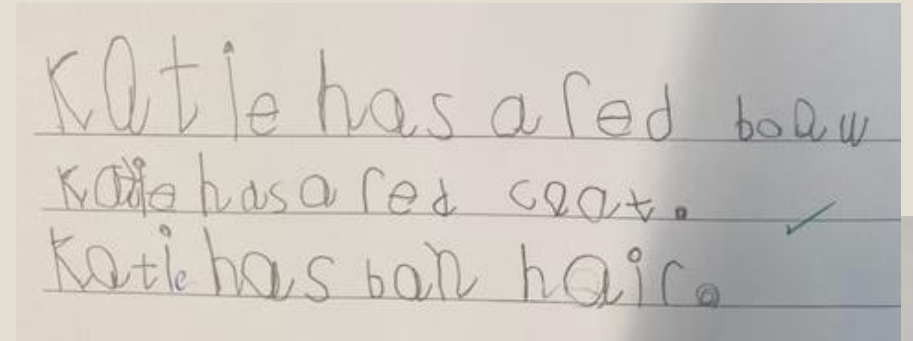 Katie has a red boaw
Katie has a red coat.
Katie has ban hair.